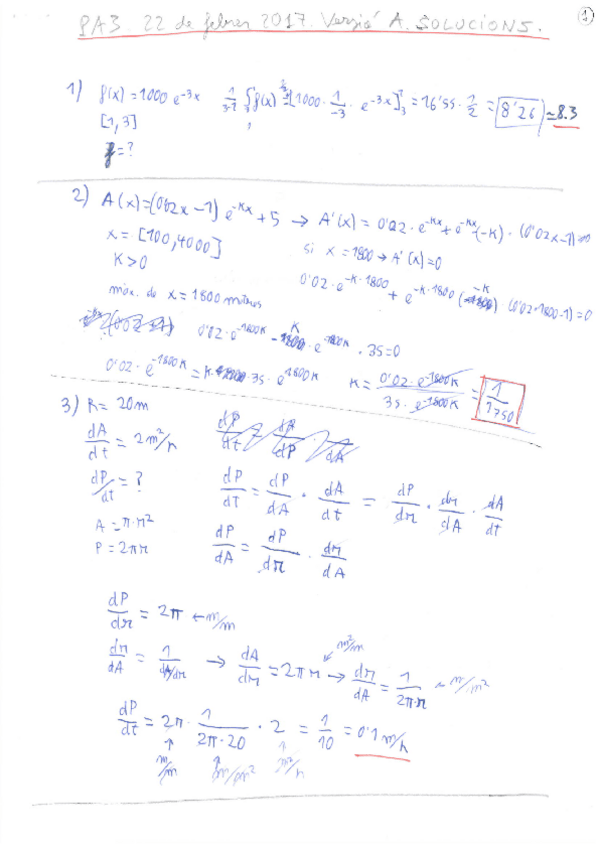 PA3. 22 de febrer 2017. Versió A. SOLUCIONS.
1
1) f(x)=1000 e^-3x 1/3-1 ∫ f(x) = [1000 · 1/-3 · e^-3x] = 16'55 · 1/2 = 8'26 ≈ 8.3
[1,3]
f=?
2) A(x)=(0'02x-1) e^-Kx + 5 → A'(x) = 0'02 · e^-Kx + e^-Kx (-K) · (0'02x-1)=0
x = [100,4000] si x = 1800 → A'(x)=0
K>0 0'02 · e^-K·1800 + e^-K·1800 (-K) (0'02·1800-1)=0
màx. de x = 1800 metres
0'02 · e^-1800K - K · e^-1800K · 35=0
0'02 · e^-1800K = K · 35 · e^-1800K K = 0'02 · e^-1800K / 35 · e^-1800K = 1/1750
3) R= 20m
dA/dt = 2m²/h
dP/dt = ? dP/dt = dP/dA · dA/dt = dP/dr · dr/dA · dA/dt
A = π·r²
P = 2πr dP/dA = dP/dr · dr/dA
dP/dr = 2π ← m/m
dr/dA = 1/dA/dr → dA/dr = 2πr ← m²/m → dr/dA = 1/2π·r ~ m/m²
dP/dt = 2π · 1/2π·20 · 2 = 1/10 = 0'1 m/h
↑ m/m ↑ m/m² ↑ m²/h